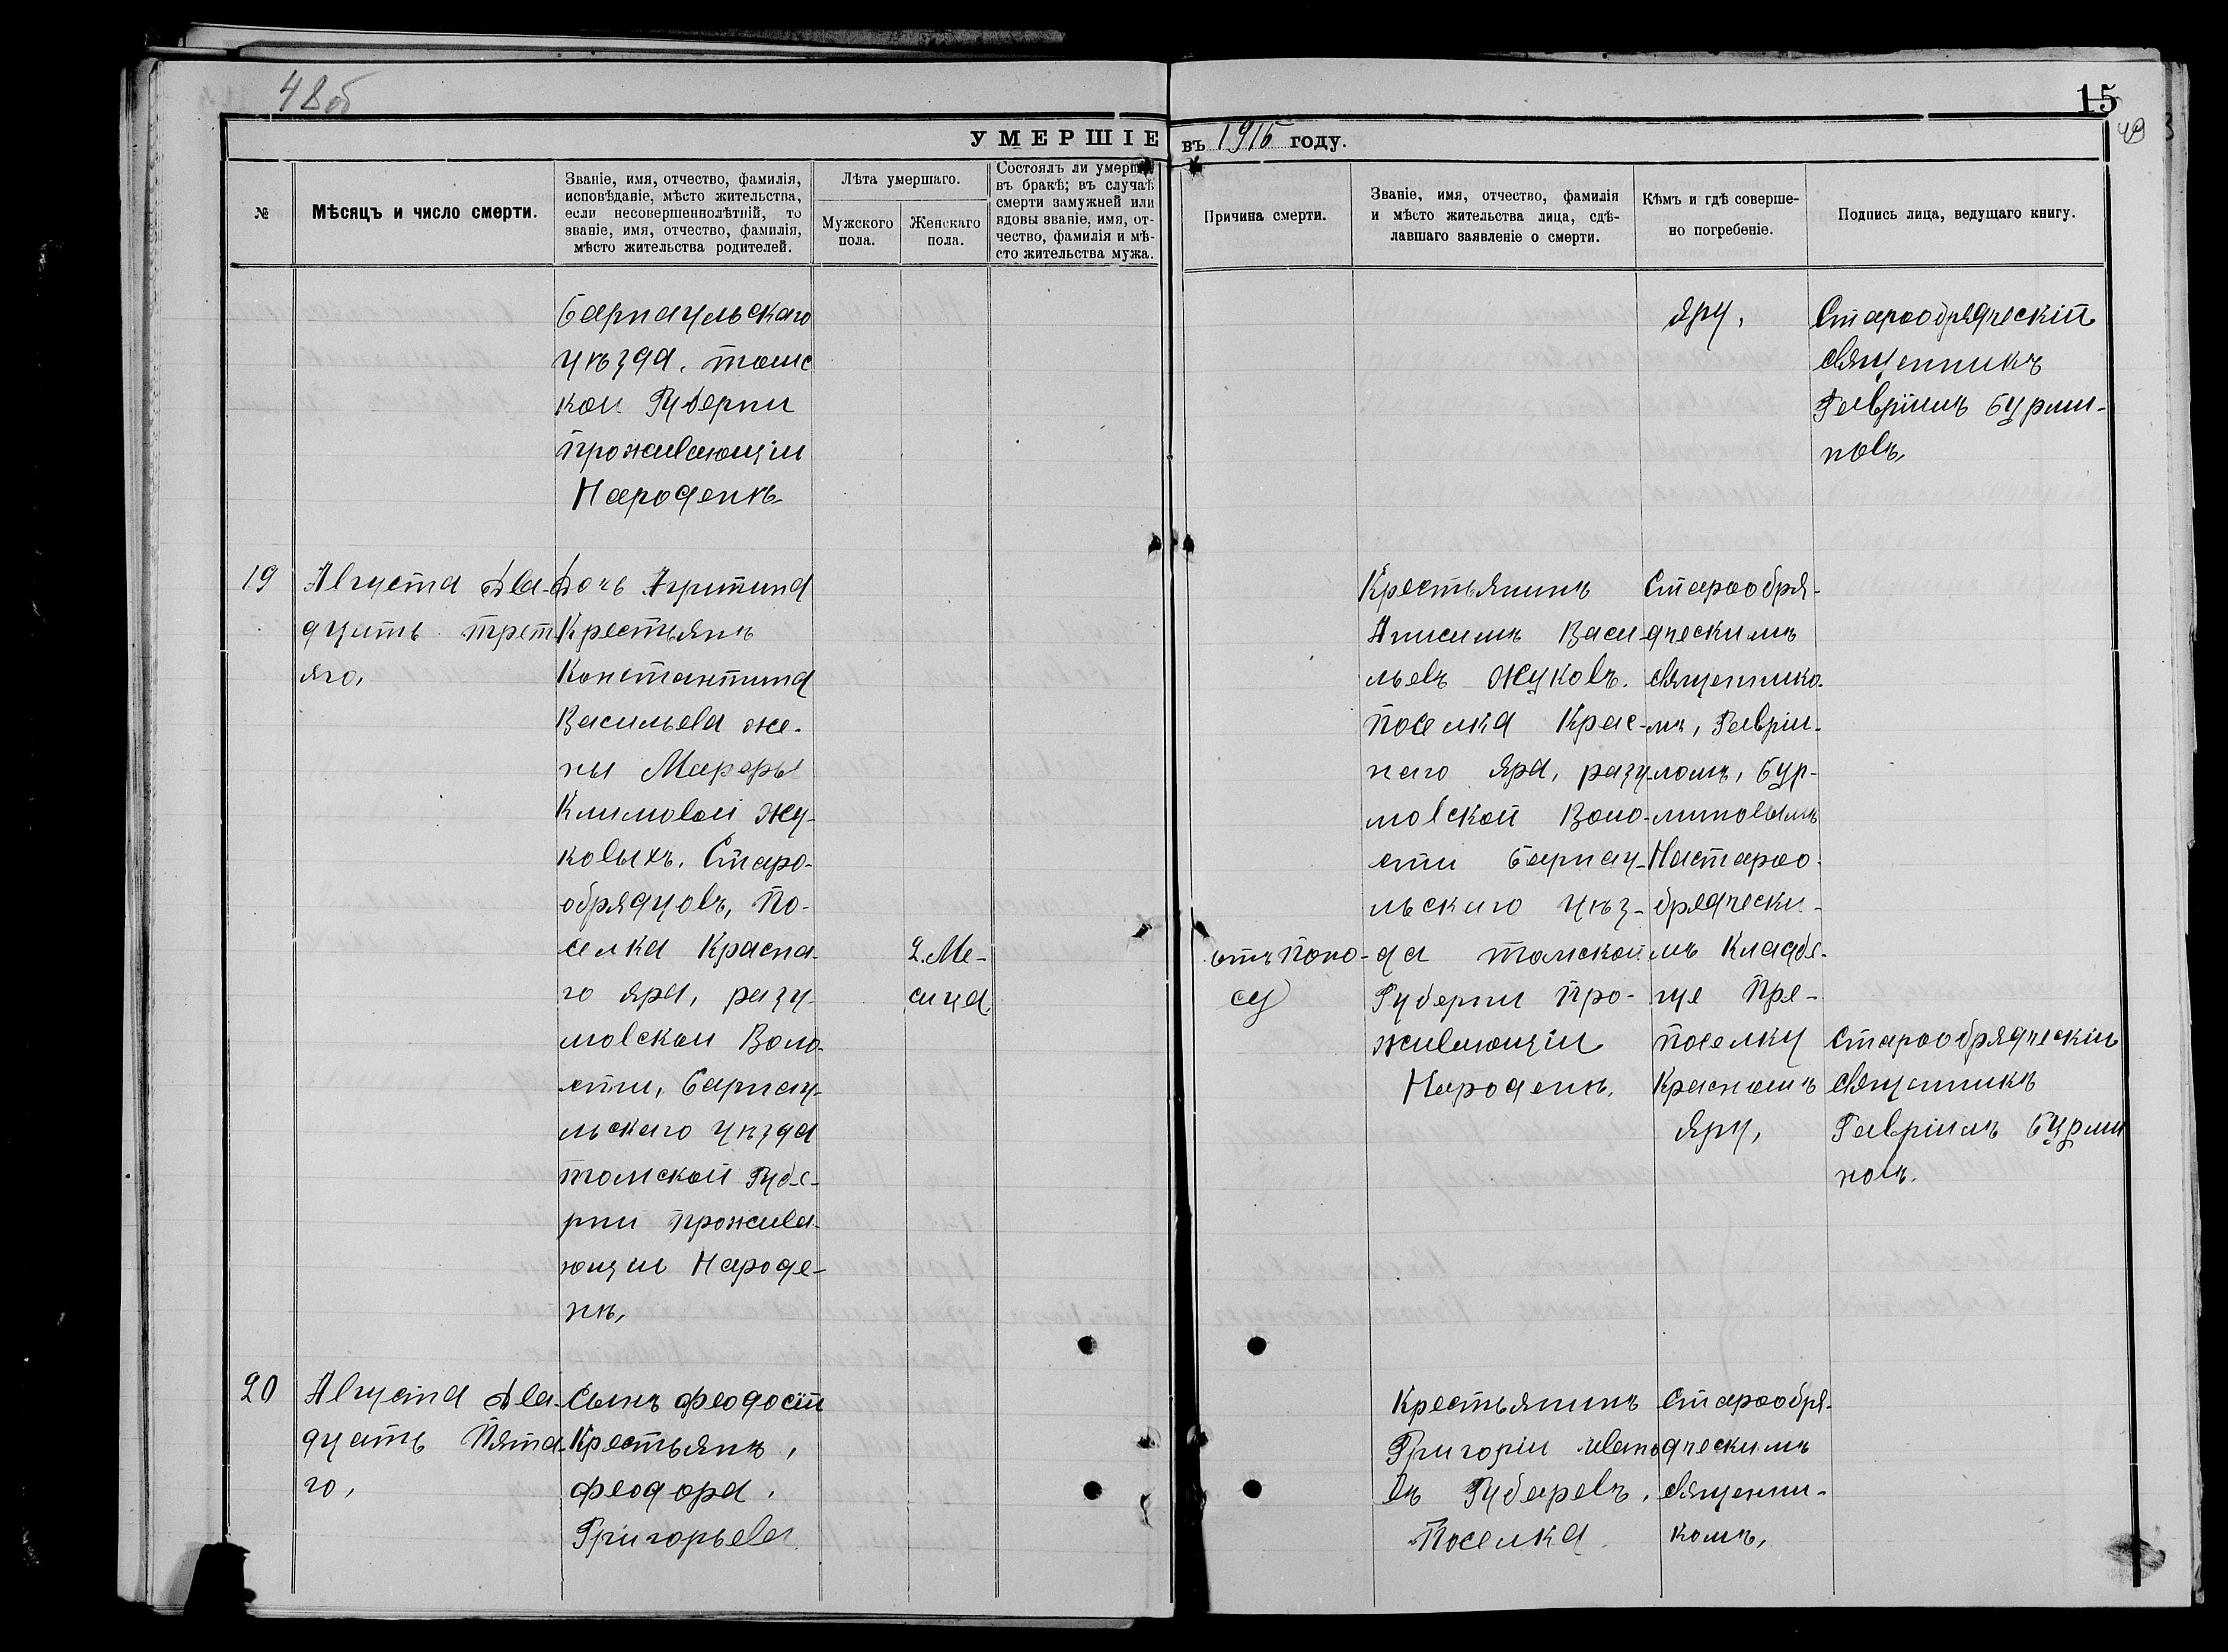 48об
15
49
УМЕРШІЕ въ 1915 году.
№
Мѣсяцъ и число смерти.
Званіе, имя, отчество, фамилія,
исповѣданіе, мѣсто жительства,
если несовершеннолѣтній, то
званіе, имя, отчество, фамилія,
мѣсто жительства родителей.
Лѣта умершаго.
Мужского
пола.
Женскаго
пола.
Состоялъ ли умершій
въ бракѣ; въ случаѣ
смерти замужней или
вдовы званіе, имя, от-
чество, фамилія и мѣ-
сто жительства мужа.
Причина смерти.
Званіе, имя, отчество, фамилія
и мѣсто жительства лица, сдѣ-
лавшаго заявленіе о смерти.
Кѣмъ и гдѣ соверше-
но погребеніе.
Подпись лица, ведущаго книгу.
Барнаульскаго
уѣзда. томс
кои Губерни
проживающіи
Народенѣ
Яру,
Старообрядческій
священникъ
Гавріилъ Бурми-
новъ,
19
Августа два-
дцать трет
яго,
Дочь Агрипина
Крестьянъ
Константина
Васильева же-
ны Марѳры
Климовой Жу-
ковыхъ. Старо-
обрядцовъ, По-
селка Красна-
го яра, разу-
мовской Воло-
сти, Барнау-
льскаго уѣзда
томской Губе-
рни прожива-
ющіи Народе-
нѣ,
2. Ме-
сица
отъ поно-
су
Крестьянинъ
Анисимъ Васи-
льевъ Жуковъ.
поселка Крас-
наго яра, разу-
мовской Воло-
сти Барнау-
льскаго уѣз-
да томской
Губерни про-
живающіи
Народенѣ.
Старообря-
дческимъ
священнико-
мъ, Гаврiи-
ломъ, Бур-
миновымъ
Настароо-
брядчески-
мъ Кладбе-
ще Пре-
поселку
Красномъ
Яру,
Старообрядческіи
священникъ
Гавріилъ Бурми
новъ.
20
Августа два-
дцать Пята-
го,
Сынъ Феодосій
Крестьянъ,
Феодора,
Григорьева
Крестьянинъ
Григоріи Ивано
въ Губаревъ,
Поселка
Старообря-
дческимъ
священни-
комъ,